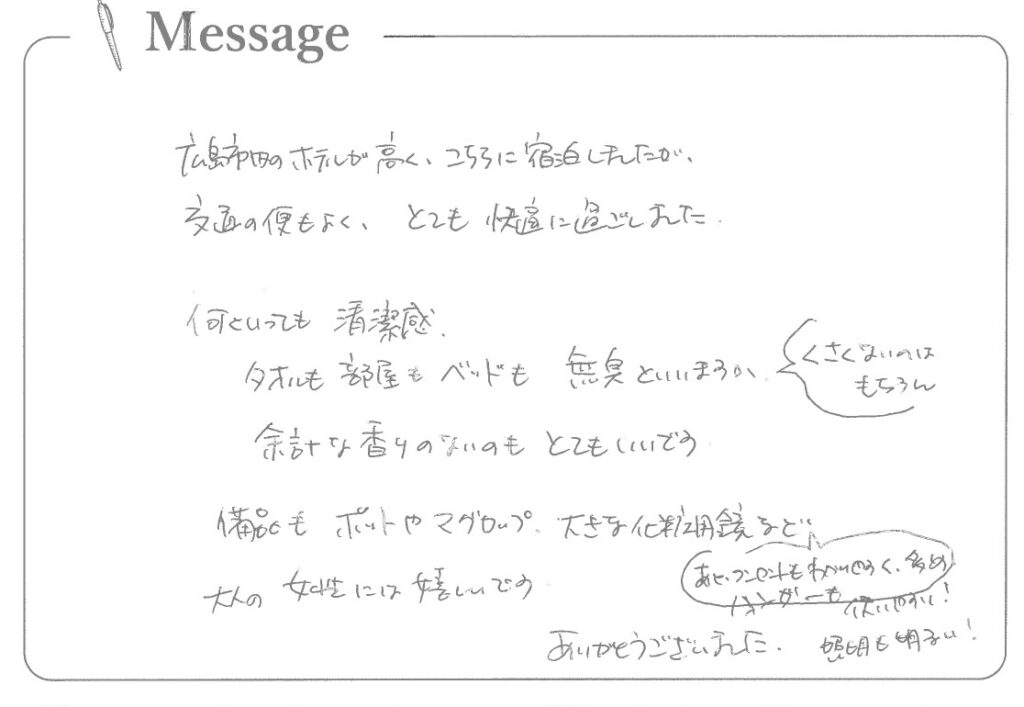 Message
広島市内のホテルが高く、こちらに宿泊しましたが、
交通の便もよく、とても快適に過ごしました.
何といっても 清潔感.
タオルも 部屋も ベッドも 無臭といいますか、
くさくないのは
もちろん
余計な香りのないのも とてもいいです
備品も ポットや マグカップ、大きな化粧用鏡など、
あと、コンセントもわかりやすく、多め
ハンガーも 使いやすい!
大人の 女性には 嬉しいです
照明も明るい!
ありがとうございました.